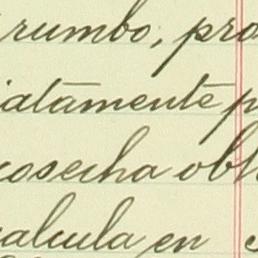 rumbo, pro
iatamente p
cosecha obt
calcula en